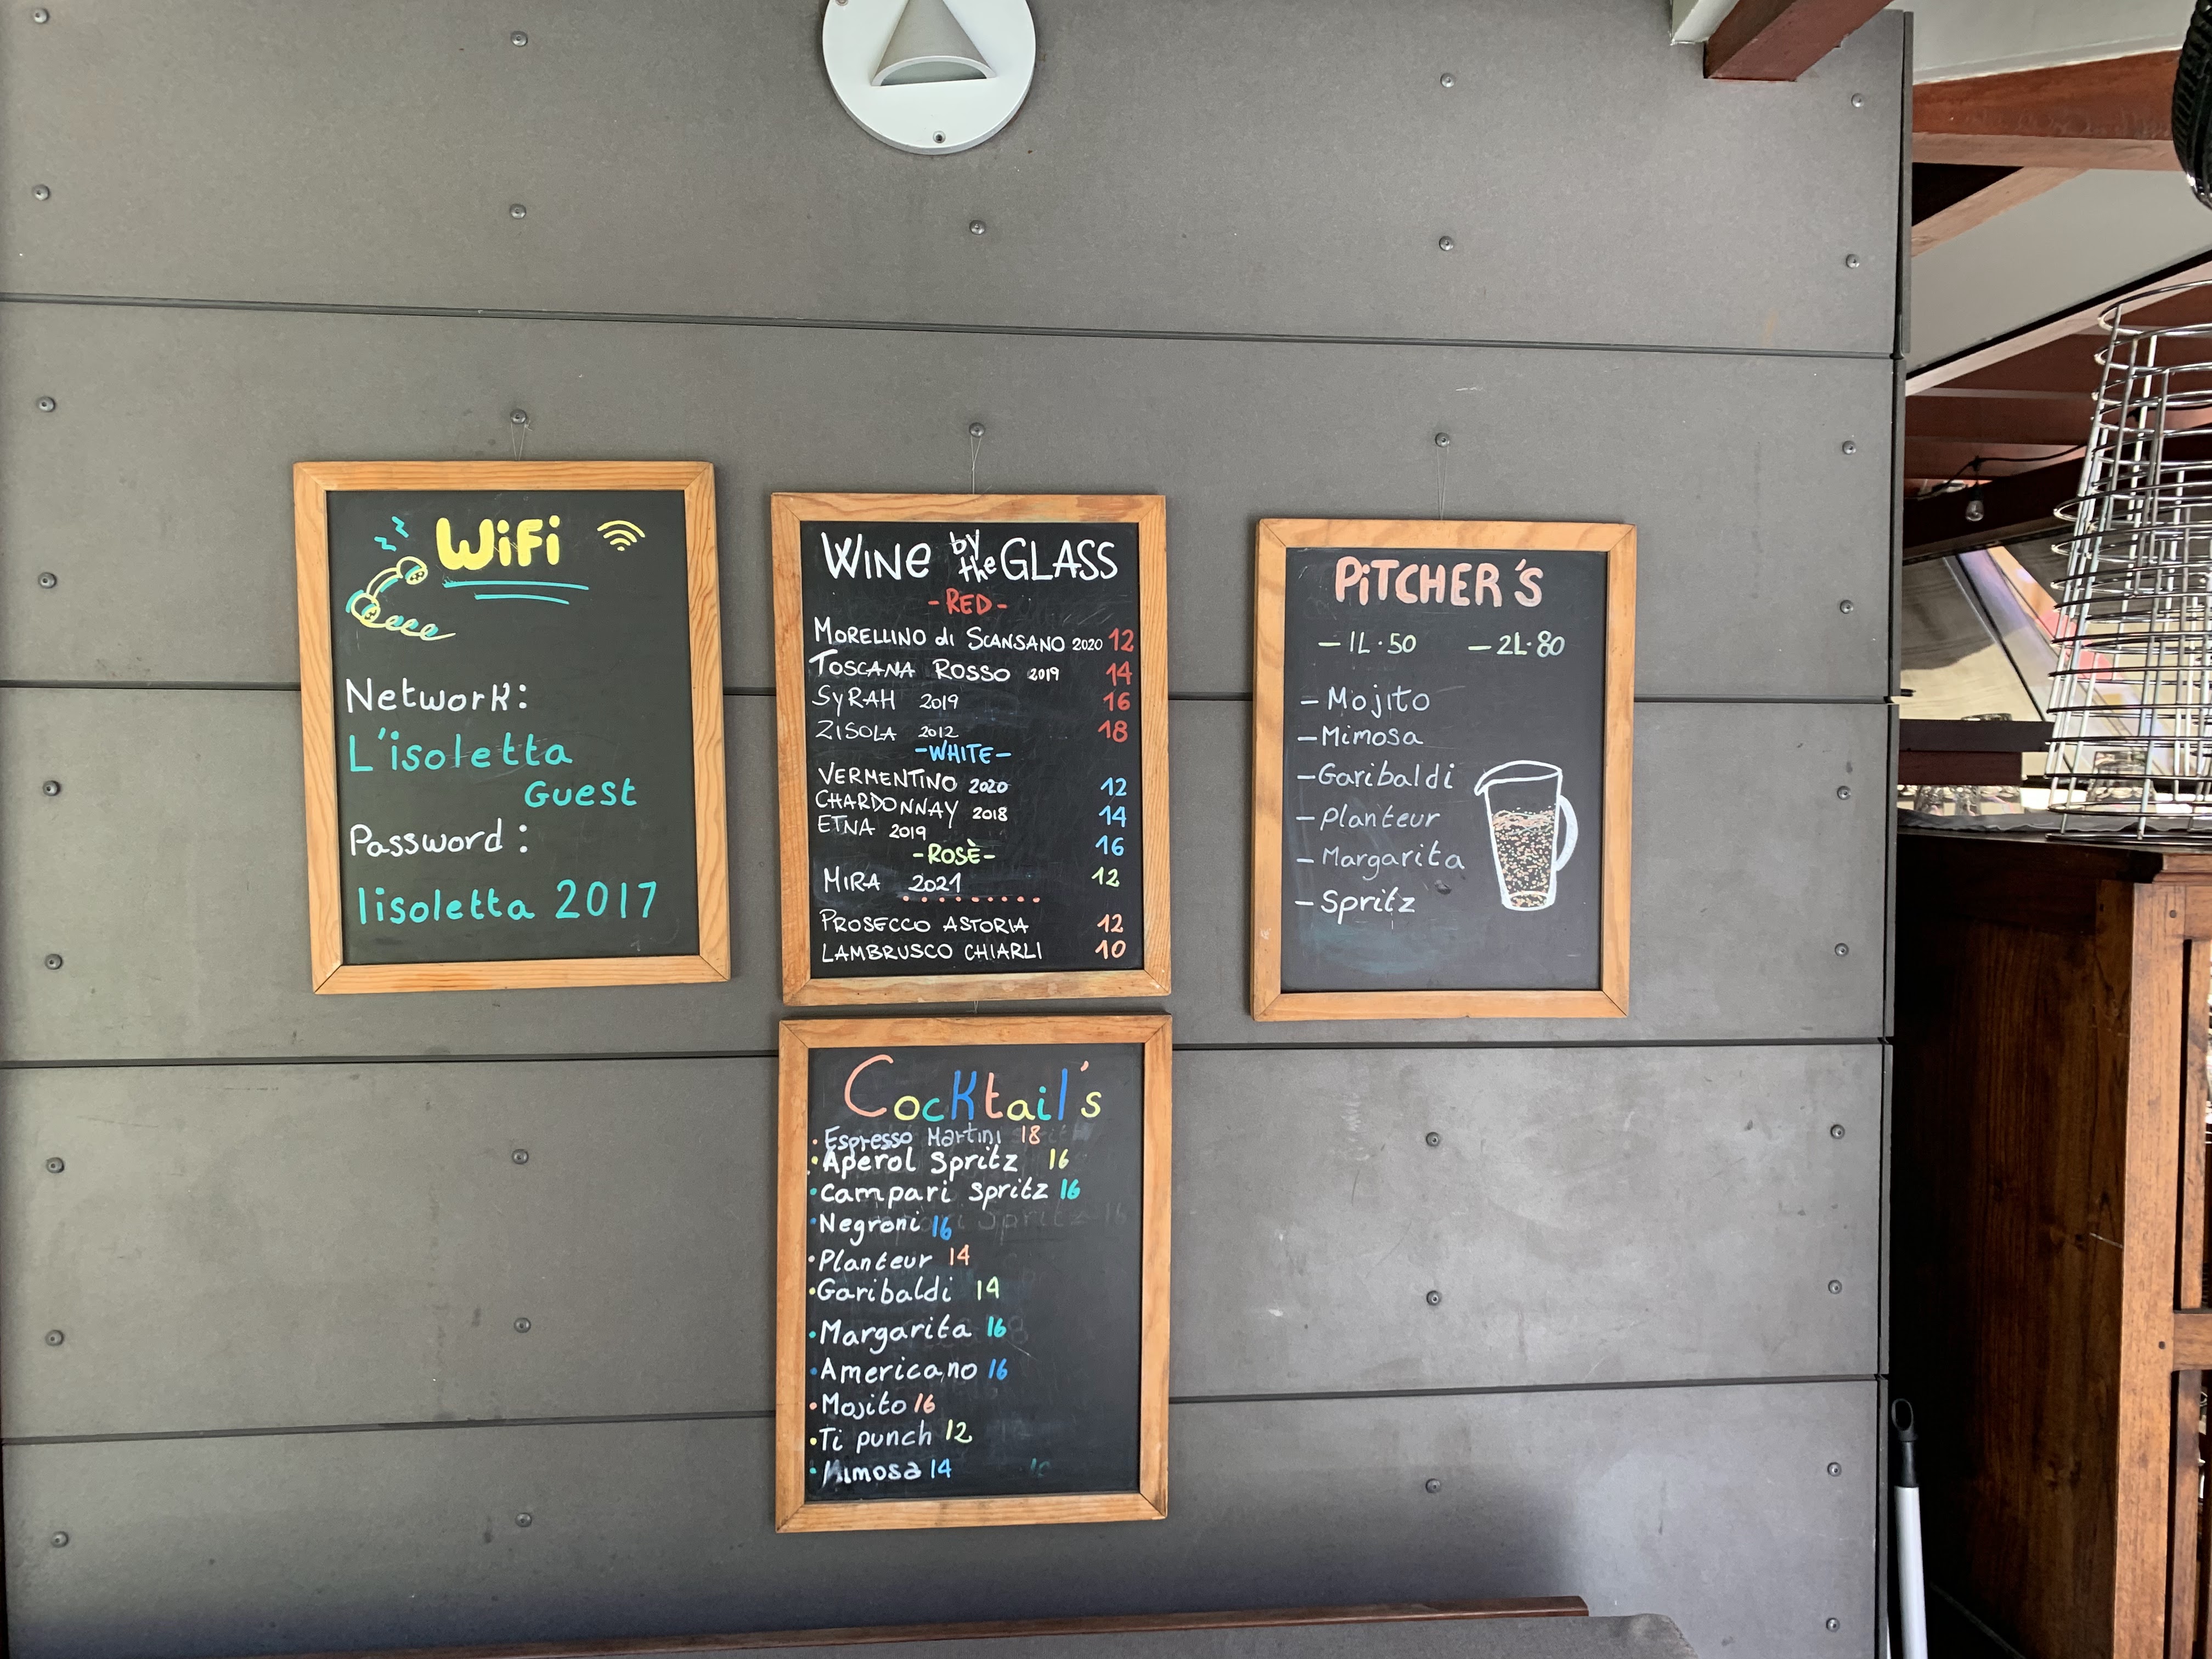 WiFi
Network:
L'isoletta
Guest
Password:
lisoletta 2017
WINE by the GLASS
-RED-
MORELLINO di SCANSANO 2020 12
TOSCANA ROSSO 2019 14
SyRAH 2019 16
ZISOLA 2012 18
-WHITE-
VERMENTINO 2020 12
CHARDONNAY 2018 14
ETNA 2019 16
-ROSÈ-
MIRA 2021 12
PROSECCO ASTORIA 12
LAMBRUSCO CHIARLI 10
PiTCHER'S
-1L·50 -2L·80
-Mojito
-Mimosa
-Garibaldi
-Planteur
-Margarita
-Spritz
Cocktail's
·Espresso Martini 18
·Aperol Spritz 16
·Campari Spritz 16
·Negroni 16
·Planteur 14
·Garibaldi 14
·Margarita 16
·Americano 16
·Mojito 16
·Ti punch 12
·Mimosa 14